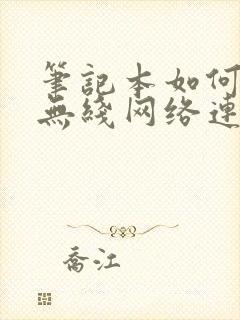 筆記本如何
無綫网络連
喬江